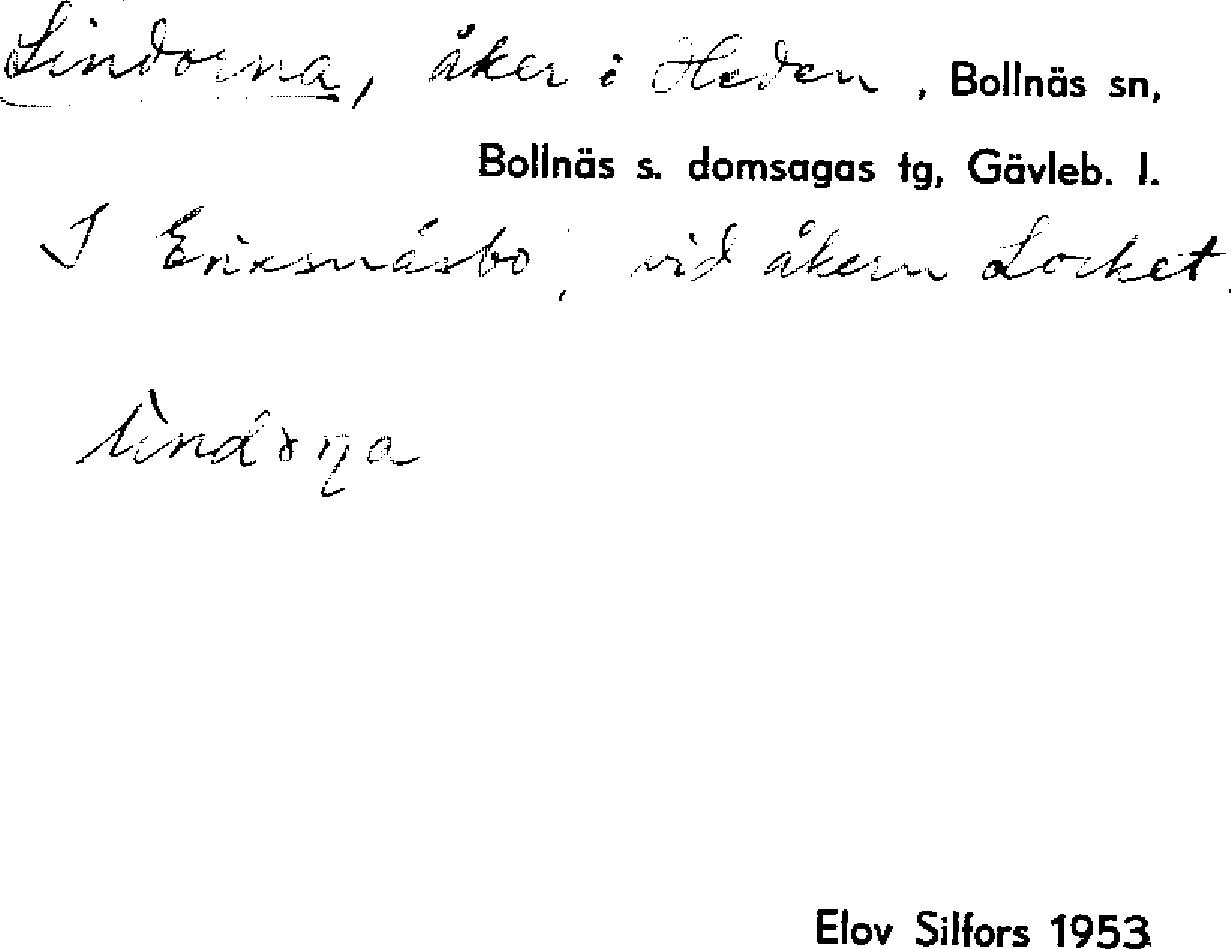 Lindorna, åker i Heden, Bollnäs sn,
Bollnäs s. domsagas tg, Gävleb. l.
I Erixsnäsbo, vid åkern Locket.
Elov Silfors 1953